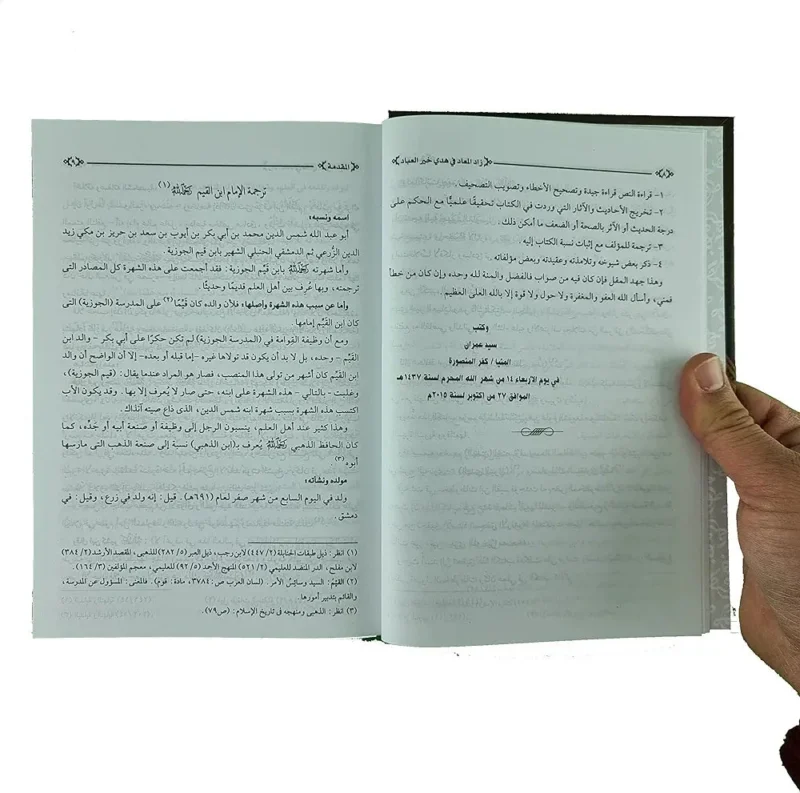 زاد المعاد في هدي خير العباد
٨
١- قراءة النص قراءة جيدة وتصحيح الأخطاء وتصويب التصحيف .
٢- تخريج الأحاديث والآثار التي وردت في الكتاب تحقيقًا علميًّا مع الحكم على
درجة الحديث أو الأثر بالصحة أو الضعف ما أمكن ذلك.
٣- ترجمة للمؤلف مع إثبات نسبة الكتاب إليه.
٤- ذكر بعض شيوخه وتلامذته وعقيدته وبعض مؤلفاته
وهذا جهد المقل فإن كان فيه من صواب فالفضل والمنة لله وحده وإن كان من خطأ
فمني، وأسأل الله العفو والمغفرة ولا حول ولا قوة إلا بالله العلى العظيم.
وكتب
سيد عمران
المنيا / كفر المنصورة
في يوم الأربعاء ١٤ من شهر الله المحرم لسنة ١٤٣٧هـ
الموافق ٢٧ من أكتوبر لسنة ٢٠١٥م
المقدمة
٩
ترجمة الإمام ابن القيم رحمه الله (١)
اسمه ونسبه:
أبو عبد الله شمس الدين محمد بن أبي بكر بن أيوب بن سعد بن حريز بن مكي زيد
الدين الزُّرعي ثم الدمشقي الحنبلي الشهير بابن قيم الجوزية.
وأما شهرته رحمه الله بابن قَيِّم الجوزية: فقد أجمعت على هذه الشهرة كل المصادر التى
ترجمته، وبها عُرف بين أهل العلم قديمًا وحديثًا.
وأما عن سبب هذه الشهرة وأصلها، فلأن والده كان قَيِّمًا (٢) على المدرسة (الجوزية) التى
كان ابن القَيِّم إمامها
ومع أن وظيفة القوامة في (المدرسة الجوزية) لم تكن حكرًا على أبي بكر - والد ابن
القَيِّم - وحده، بل لا بد أن يكون قد تولاها غيره -إما قبله أو بعده- إلا أن الواضح أن والد
ابن القَيِّم كان أشهر من تولى هذا المنصب، فصار هو المراد عندما يقال: (قيم الجوزية)،
وغلبت - بالتالي - هذه الشهرة على ابنه، حتى صار لا يُعرف إلا بها. وقد يكون الأب
اكتسب هذه الشهرة بسبب شهرة ابنه شمس الدين، الذى ذاع صيته آنذاك.
وهذا كثير عند أهل العلم، ينسبون الرجل إلى وظيفة أو صنعة أبيه أو جَدِّه، كما
كان الحافظ الذهبي رحمه الله يُعرف بـ(ابن الذهبي) نسبة إلى صنعة الذهب التى مارسها
أبوه (٣)
مولده ونشأته:
ولد في اليوم السابع من شهر صفر لعام (٦٩١هـ). قيل: إنه ولد في زرع، وقيل: في
دمشق.
(١) انظر: ذيل طبقات الحنابلة (٢/ ٤٤٧) لابن رجب، ذيل العبر (٥/ ٢٨٢) للذهبى، المقصد الأرشد (٢/ ٣٨٤)
لابن مفلح، الدر المنضد للعليمي (٢/ ٥٢١) المنهج الأحمد (٥/ ٩٢) للعليمي، معجم المؤلفين (٣/ ١٦٤).
(٢) القَيِّمُ: السيد وسائِسُ الأمر. (لسان العرب ص: ٣٧٨٤، مادة: قوم). فالمعنى: المسؤول عن المدرسة،
والقائم بتدبير أمورها.
(٣) انظر: الذهبى ومنهجه فى تاريخ الإسلام: (ص٧٩).